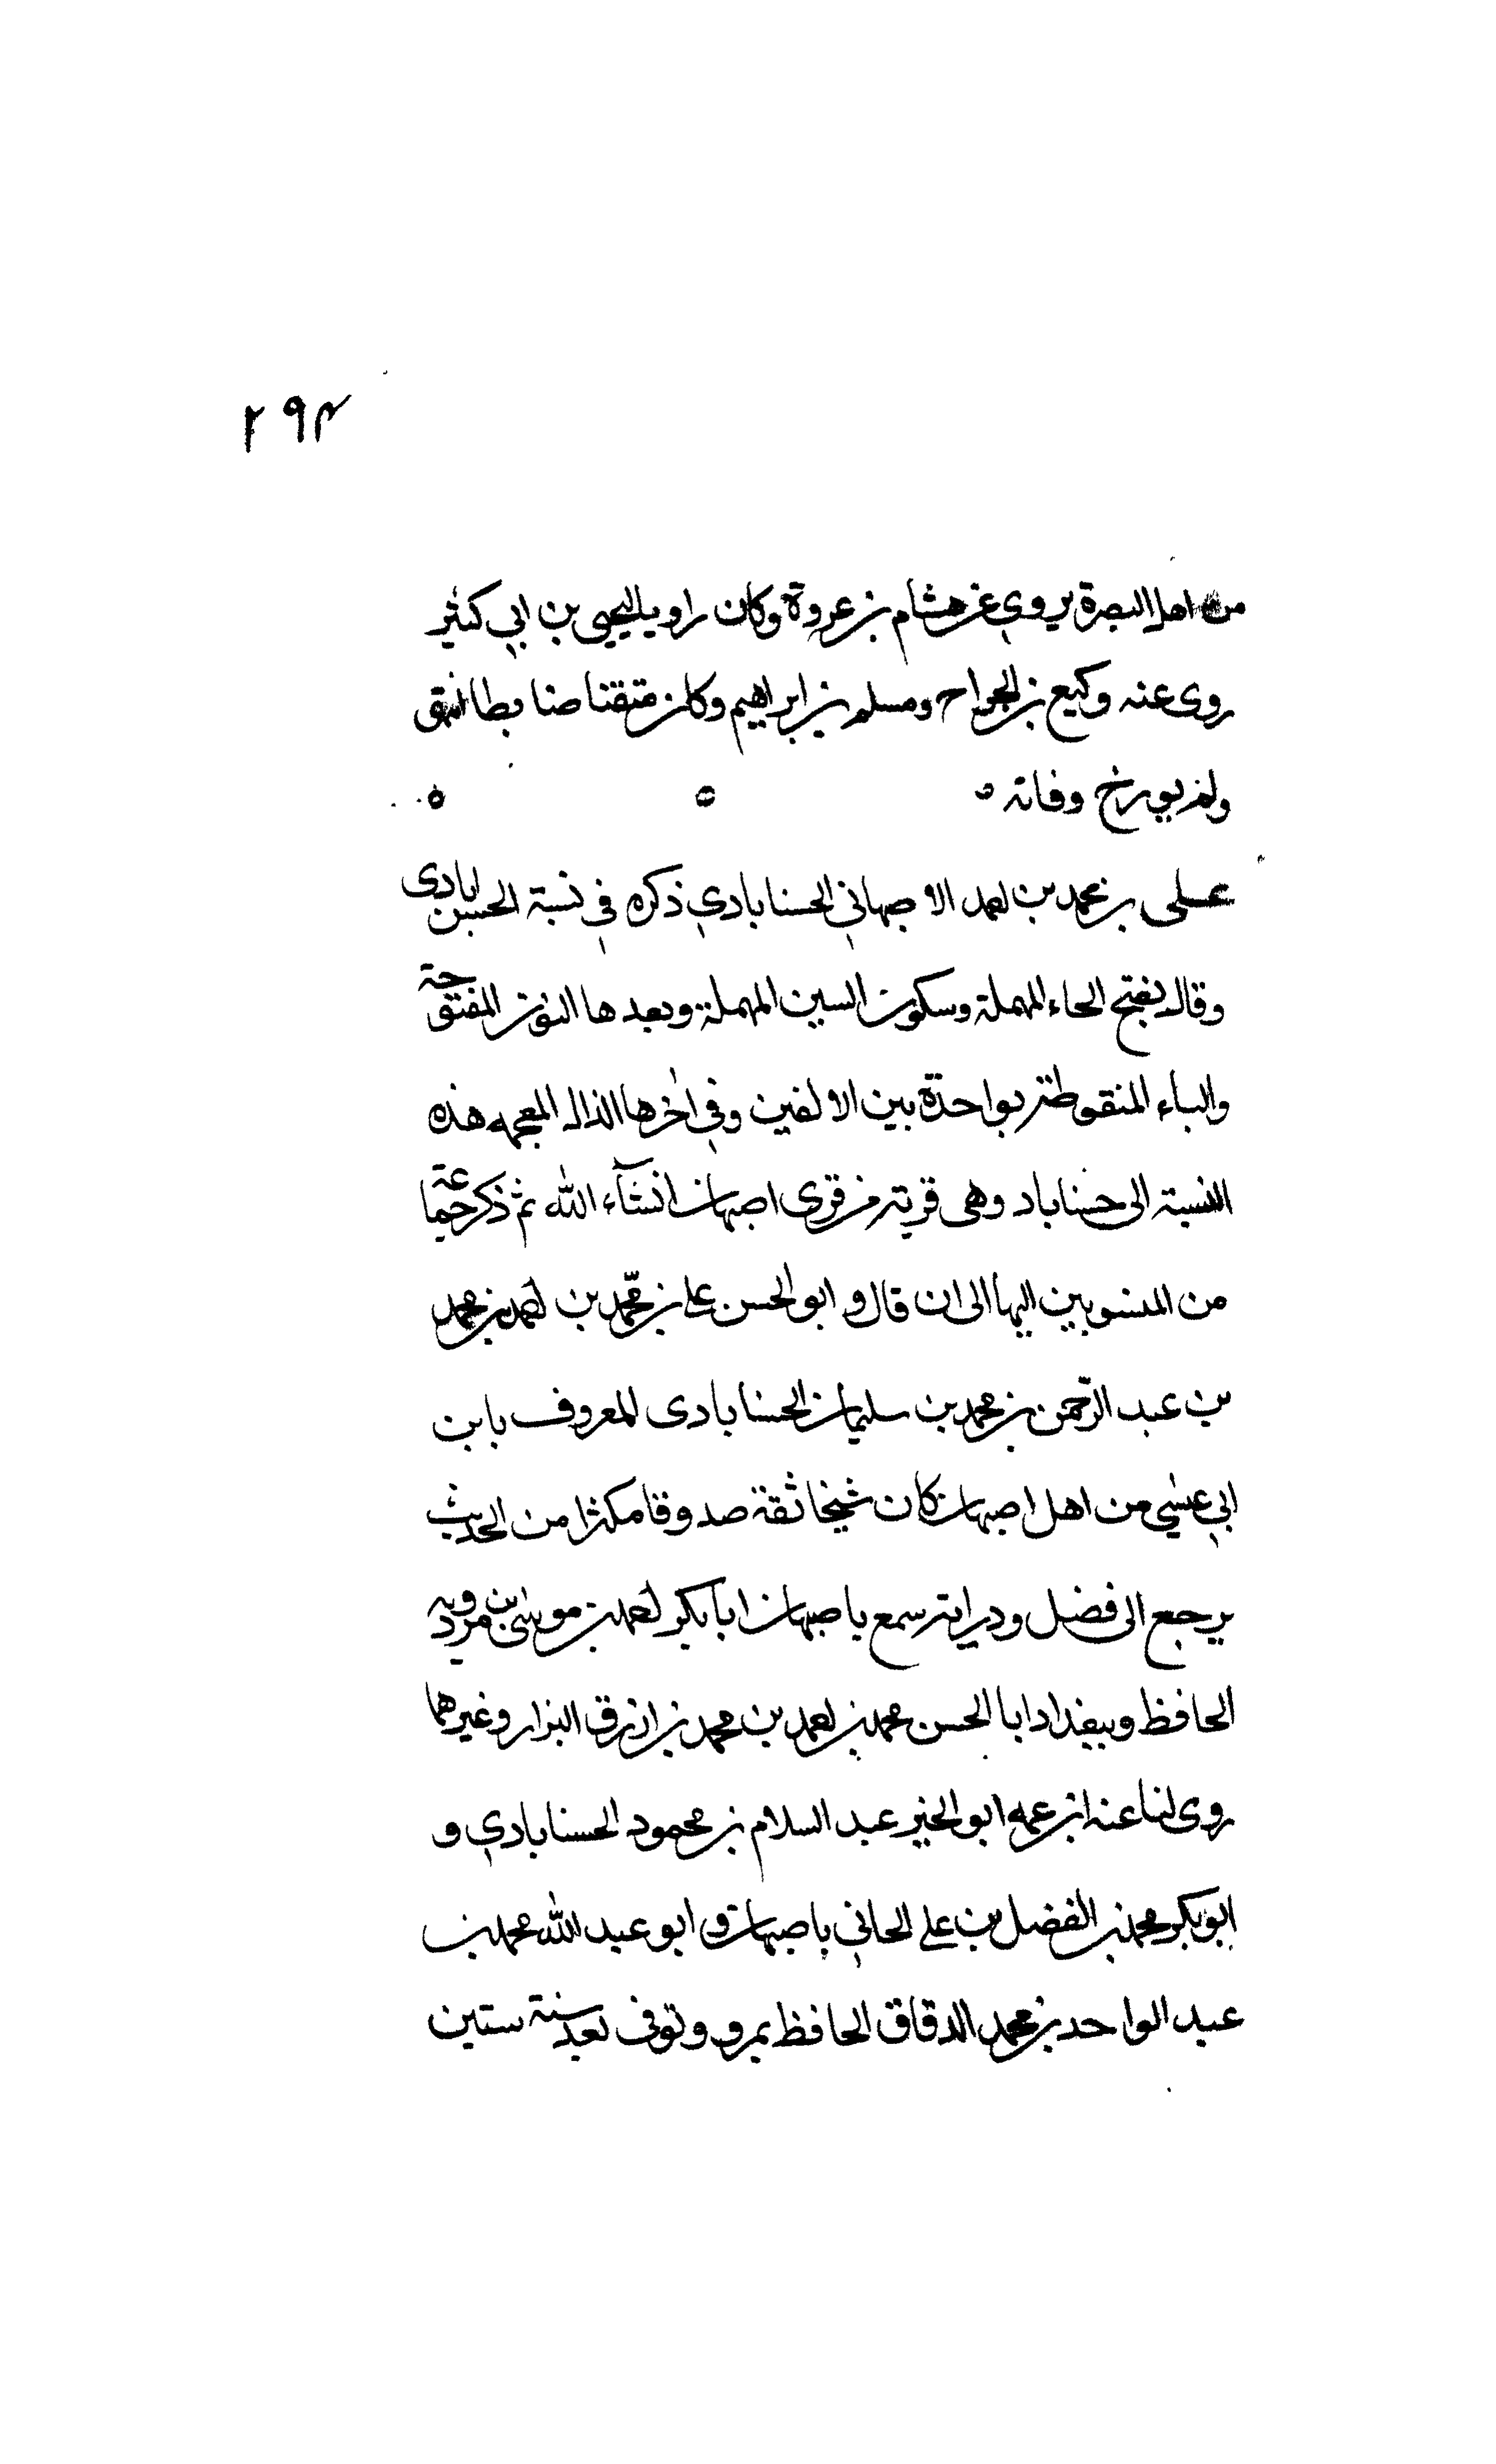 ٢٩٣
من اهل البصرة يروي عن هشام بن عروة وكان راويا ليحيى بن ابي كثير
روى عنه وكيع بن الجراح ومسلم بن ابراهيم وكان متقنا ضابطا انتهى
ولم يورخ وفاته ه ه ه
على بن محمد بن احمد الاصبهاني الحسنابادي ذكره في نسبة الحسنابادى
وقال بفتح الحاء المهملة وسكون السين المهملة وبعدها النون المفتوحة
والباء المنقوطة بواحدة بين الالفين وفي اخرها الذال المعجمه هذه
النسبة الى حسناباد وهى قرية من قرى اصبهان انشآء الله ثم ذكر جماعة
من المنسوبين اليها الى ان قال و ابو الحسن على بن محمّد بن احمد بن محمد
بن عبد الرّحمن بن محمد بن سليمان الحسنابادى المعروف بابن
ابي عيسى من اهل اصبهان كان شيخا ثقة صدوقا مكثرا من الحديث
يرجع الى فضل ودراية سمع باصبهان ابا بكر احمد بن موسى بن مردويه
الحافظ وببغداد ابا الحسن محمد بن احمد بن محمد بن ازرق البزار وغيرهما
روى لنا عنه ابن عمه ابو الخير عبد السلام بن محمود الحسنابادي و
ابو بكر محمد بن الفضل بن علي الخاني باصبهان و ابو عبد الله محمد بن
عبد الواحد بن محمد الدقاق الحافظ بمرو وتوفى بعد سنة ستين